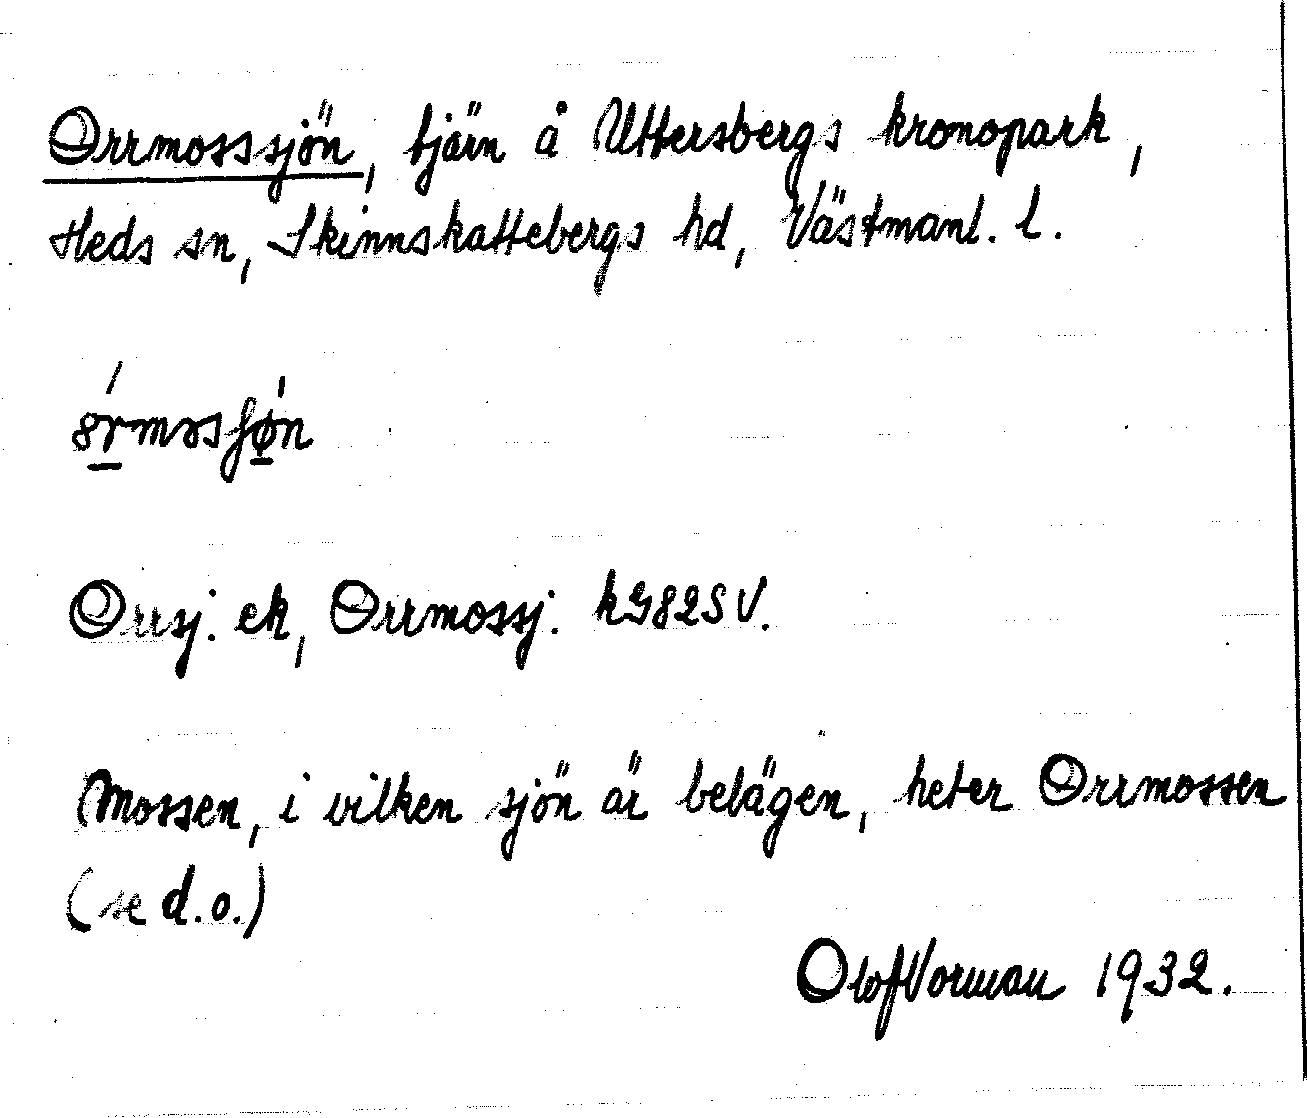 Orrmosssjön, tjärn å Uttersbergs kronopark,
Heds sn, Skinnskattebergs hd, Västmanl. l.
Orrsj. ek, Orrmossj. kG82SV.
Mossen, i vilken sjön är belägen, heter Orrmossen
(se d.o.)
Olof Vorman 1932.